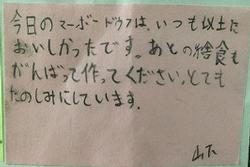 今日のマーボードウフは、いつも以上に
おいしかったです。あとの給食も
がんばって作ってください。とても
たのしみにしています。
山下